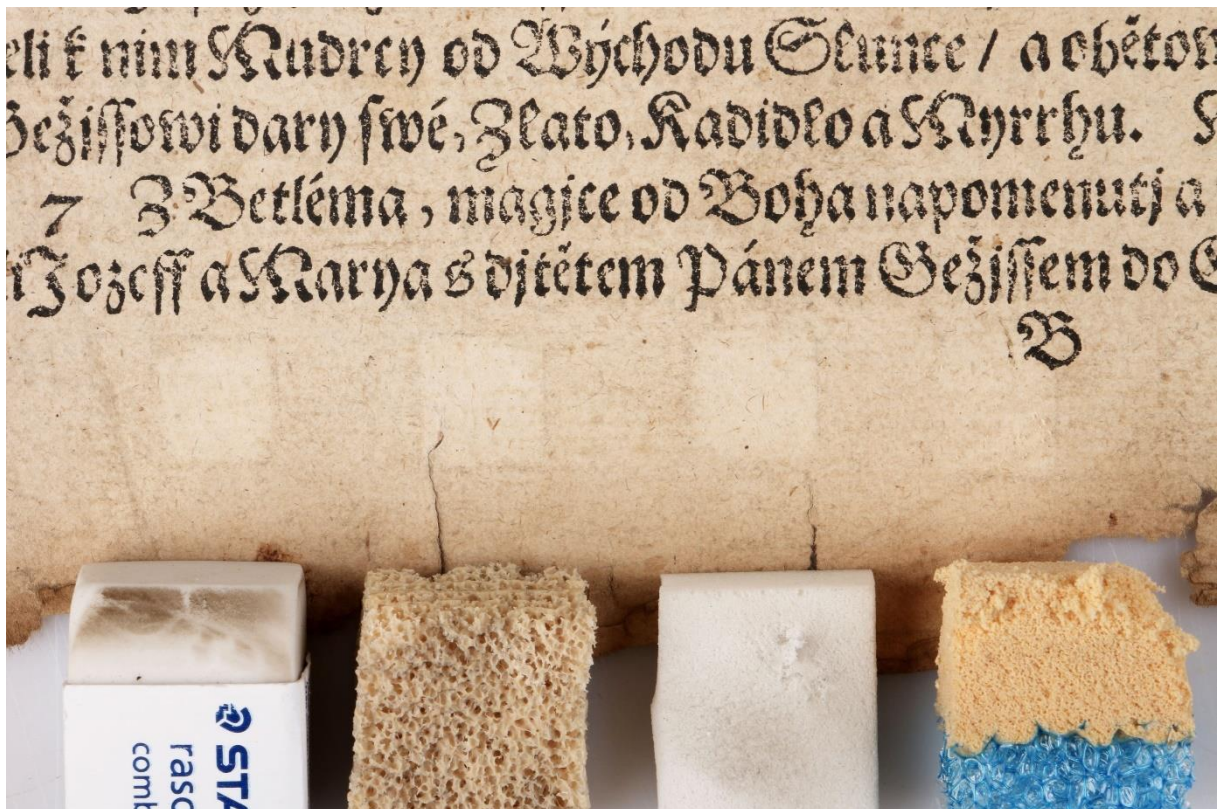 eli k nim Mudrcy od Wýchodu Slunce / a obětow
Gežjſſowi dary ſwé, Zlato, Kadidlo a Myrrhu.
7 Z Betléma, magjce od Boha napomenutj a
Jozeff a Marya s djtětem Pánem Gežjſſem do
B
STA
raso
comb